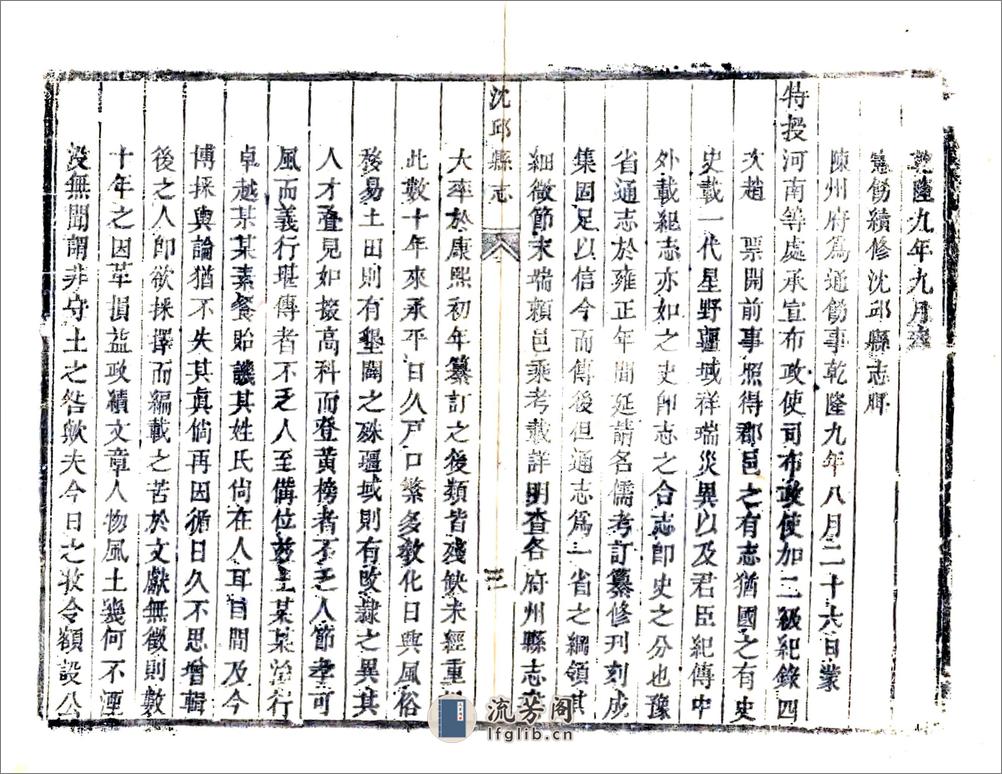 乾隆九年九月
憲飭續修沈邱縣志牌
陳州府爲通飭事乾隆九年八月二十六日蒙
特授河南等處承宣布政使司布政使加二級紀錄四
次趙 票開前事照得郡邑之有志猶國之有史
史載一代星野疆域祥瑞災異以及君臣紀傳中
外載紀志亦如之史卽志之合志卽史之分也豫
省通志於雍正年間延請名儒考訂纂修刊刻成
集固足以信今而傳後但通志爲一省之綱領其
細微節末端賴邑乘考載詳明查各府州縣志
沈邱縣志 三
大率於康熙初年纂訂之後類皆殘缺未經重
此數十年來承平日久戸口繁多敎化日興風俗
務易土田則有墾闢之殊疆域則有改隷之異其
人才叠見如掇高科而登黃榜者不乏人節孝可
風而義行堪傳者不乏人至備位兹土某某治行
卓越某某素餐貽譏其姓氏尙在人耳目間及今
博採輿論猶不失其眞倘再因循日久不思增輯
後之人卽欲採擇而編載之苦於文獻無徵則數
十年之因革損益政績文章人物風土幾何不湮
没無聞謂非守土之咎歟夫今日之牧令額設公
流芳阁
lfglib.cn